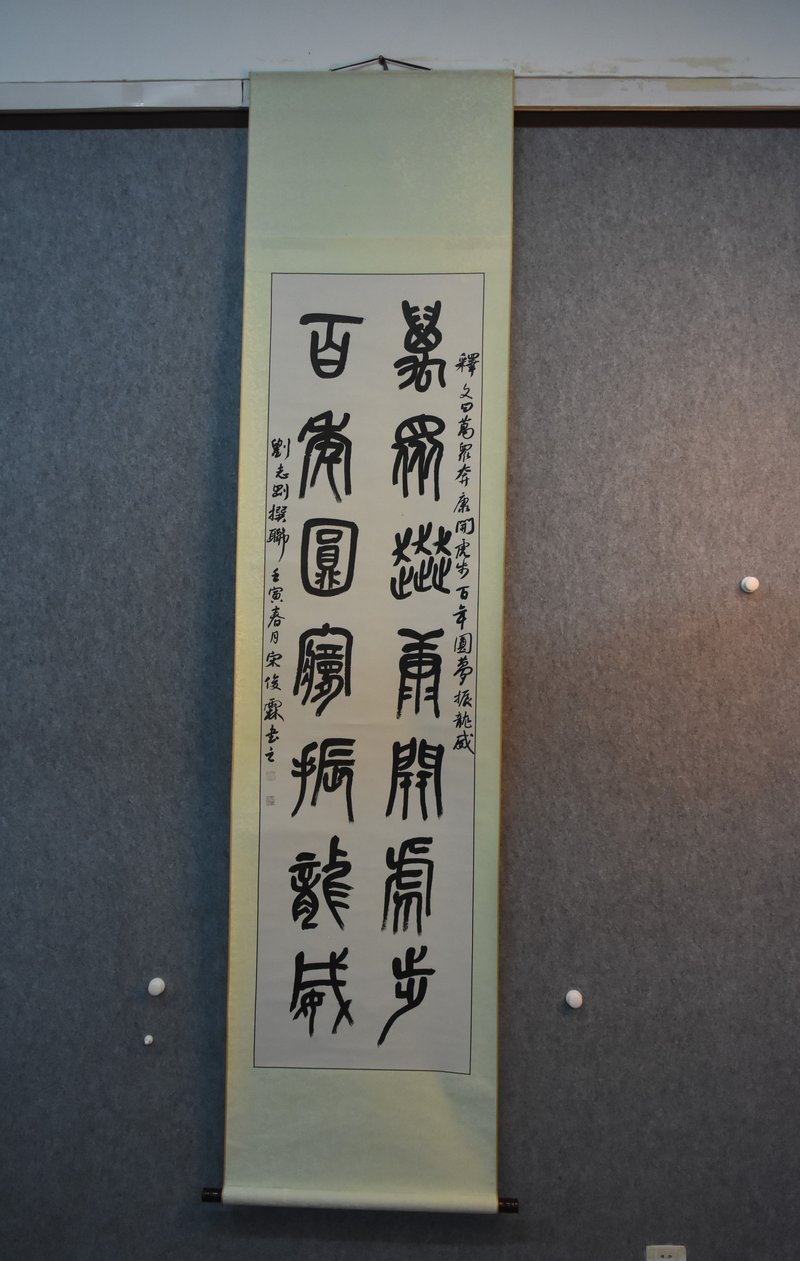 釋文曰萬眾奔康開虎步百年圓夢振龍威
萬眾奔康開虎步
百年圓夢振龍威
劉志剛撰聯 壬寅春月宋俊霖书之